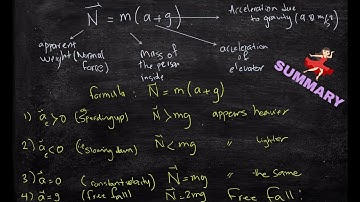 N = m(a+g)
Acceleration due to gravity (9.8 m/s²)
apparent weight (Normal Force)
mass of the person inside
acceleration of elevator
formula : N = m(a+g)
SUMMARY
1) a>0 (Speeding up) N>mg appears heavier
2) a<0 (Slowing down) N<mg " lighter
3) a=0 (constant velocity) N=mg " the same
4) a=g (Free fall) N=2mg Free fall: